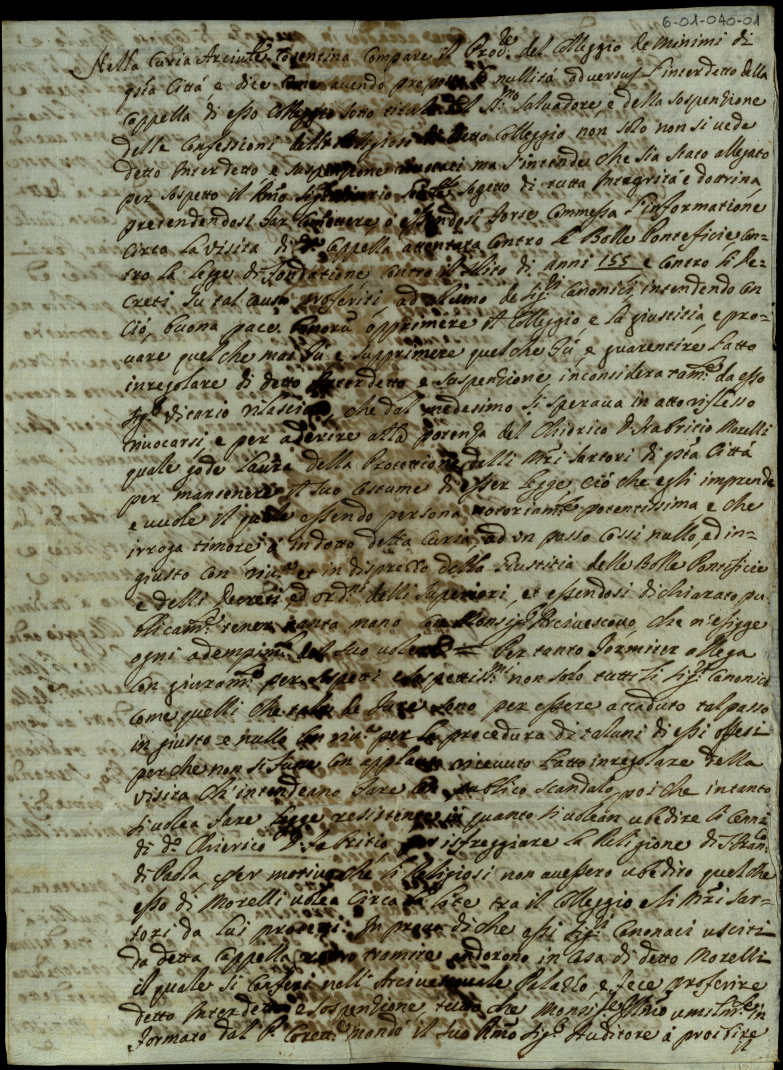 6-01-040-01
Nella Curia Arciule Cosentina Compare il Prode del Colleggio de Minimi di
qsta Città e dice come avendo proposte le nullità adversus l'interdetto della
Cappella di esso Colleggio sotto titolo del SSmo Salvadore, e della sospenzione
delle Confessioni delli Religiosi di detto Colleggio non solo non si vede
detto Interdetto e suspenzione ma s'intende che sia stato allegato
per sospetto il sogetto di tutta Integrità e dottrina
pretendendosi far Commettere, ò essendosi forse Commessa l'informatione
Circa la visita di da Cappella attentata Contro le Bolle Ponteficie, con-
tro la legge di fondatione contro il solito di anni 155 e Contro li De-
creti su tal causa proferiti, ad Canonici intendendo con
Ciò, buona pace, opprimere il Colleggio, e la giustitia e pro-
vare quel che mai fù e supprimere quel che fù, e guarentire l'atto
inregolare di detto Interdetto e suspenzione, inconsideratamte da esso
Sigr Vicario rilasciato, che dal medesimo si sperava in atto riflesso
rivocarsi, e per aderire alla potenza del Chierico D. Fabritio Morelli
quale gode l'aura della Protettione delli Mri Sartori di qsta Città
per mantenere il suo Costume di esser legge, Ciò che egli imprende
e vuole il quale essendo persona notoriamte potentissima e che
irroga timore, à indotto detta Curia, ad un passo Cossì nullo, ed in-
giusto Con et in disprezzo della Giustitia delle Bolle Ponteficie
e delli Decreti, ed ordni delli Superiori, et essendosi dichiarato pu-
blicamte tener tanta mano con Monsigr Arcivescovo, che n'esigge
ogni adempimto del suo volere = Per tanto formiter allega
Con giuramto per sospetti e sospettissmi non solo tutti li Sigri Canonici
Come quelli che sono per essere accaduto tal passo
ingiusto e nullo Con per la procedura di taluni di essi offesi
perche non si fusse con applauso ricevuto l'atto inregolare della
visita ch'intendeano fare con publico scandalo, poi che intanto
si volea fare legge resistenze in quanto si volean ubedire li Cenni
di do Chierico D. Fabritio per isfreggiare la Religione di S. Franco
di Paola, per motivo che li Religiosi non avessero ubedito quel che
esso di Morelli volea Circa la lite tra il Colleggio e li Mri Sar-
tori da lui protetti. In prova di che essi Sigri Canonaci usciti
da detta Cappella andorono in Casa di detto Morelli
il quale si Conferì nell'Arcivescovale Palazzo e fece proferire
detto Interdetto e sospenzione, tutto che Monsigr Illmo umilmte in-
formato dal Pe mandò il suo Rmo Sigr Auditore à proibire